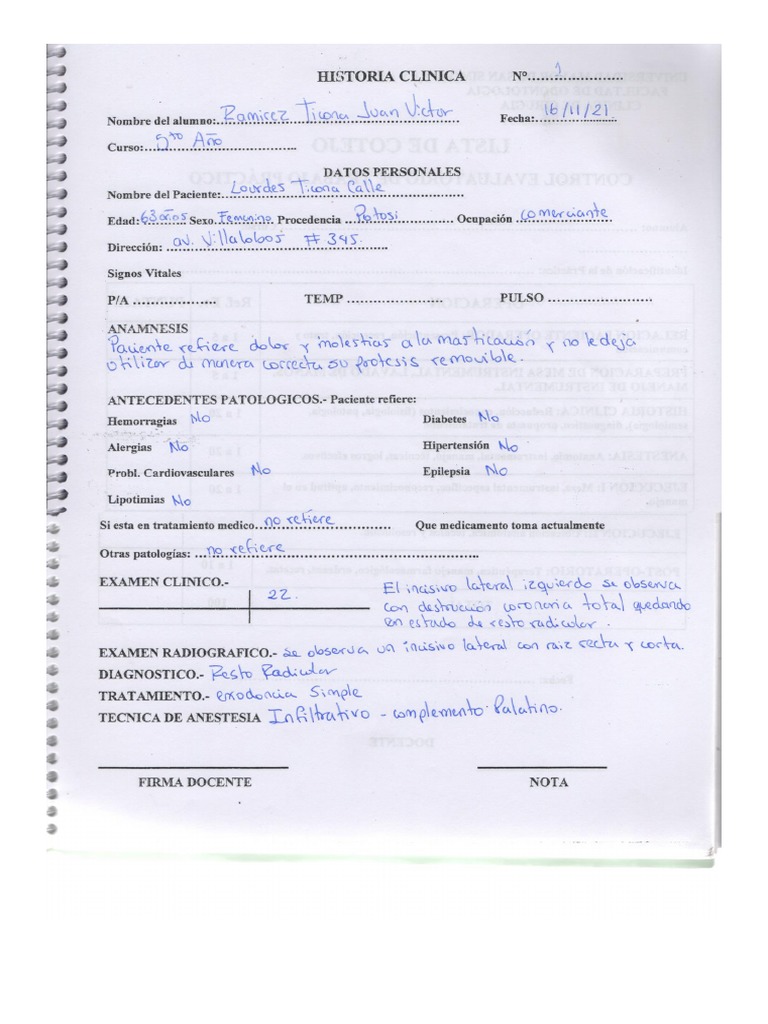 HISTORIA CLINICA N°....1....
Nombre del alumno: Ramirez Ticona Juan Victor Fecha: 16/11/21
Curso: 5to Año
DATOS PERSONALES
Nombre del Paciente: Lourdes Ticona Calle
Edad: 63 años Sexo. Femenino Procedencia Potosi Ocupación comerciante
Dirección: av. Villalobos # 345.
Signos Vitales
P/A .................. TEMP .................... PULSO ......................
ANAMNESIS
Paciente refiere dolor y molestias a la masticación y no le deja
utilizar de manera correcta su protesis removible.
ANTECEDENTES PATOLOGICOS.- Paciente refiere:
Hemorragias No Diabetes No
Alergias No Hipertensión No
Probl. Cardiovasculares No Epilepsia No
Lipotimias No
Si esta en tratamiento medico. no refiere Que medicamento toma actualmente
Otras patologías: no refiere
EXAMEN CLINICO.-
22.
El incisivo lateral izquierdo se observa
con destrucción coronaria total quedando
en estado de resto radicular.
EXAMEN RADIOGRAFICO.- se observa un incisivo lateral con raiz recta y corta.
DIAGNOSTICO.- Resto Radicular
TRATAMIENTO.- exodoncia Simple
TECNICA DE ANESTESIA Infiltrativo - complemento Palatino.
FIRMA DOCENTE NOTA